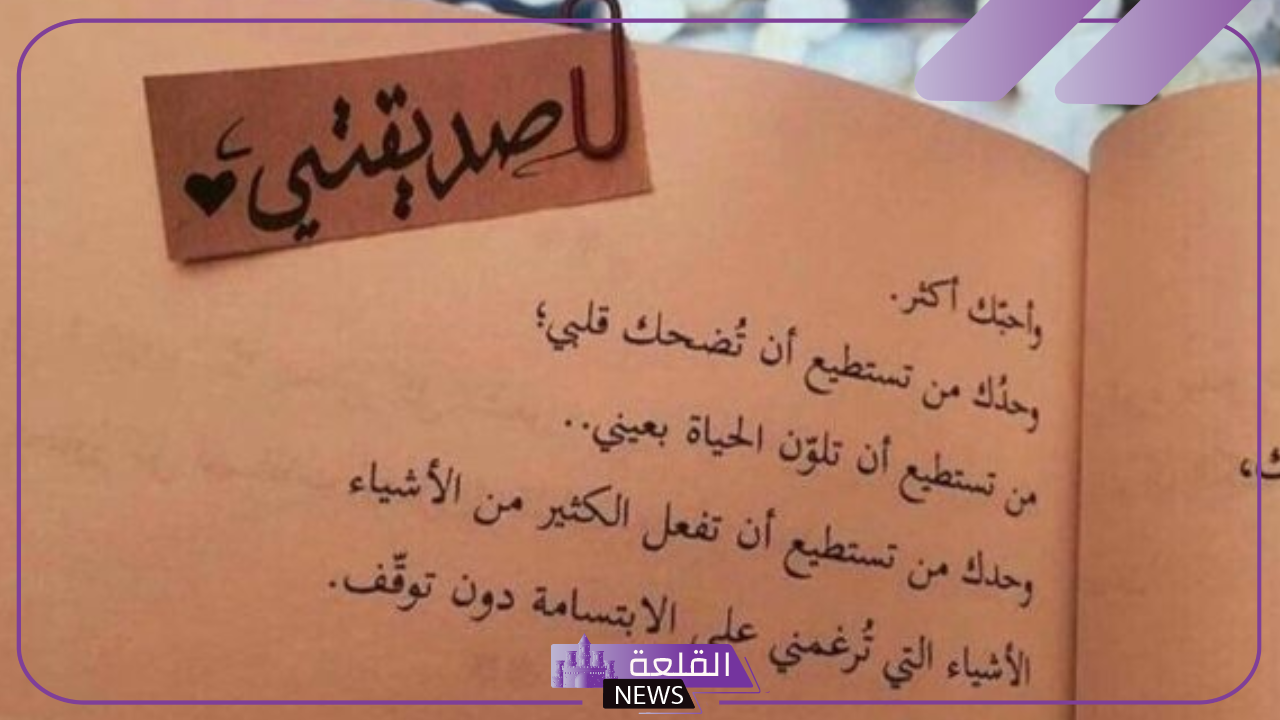 صديقتي
وأحبّك أكثر.
وحدُك من تستطيع أن تُضحك قلبي؛
من تستطيع أن تلوّن الحياة بعيني..
وحدك من تستطيع أن تفعل الكثير من الأشياء
الأشياء التي تُرغمني على الابتسامة دون توقّف.
القلعة
NEWS